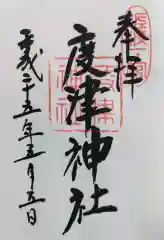 奉拝
度津神社
平成二十五年五月五日